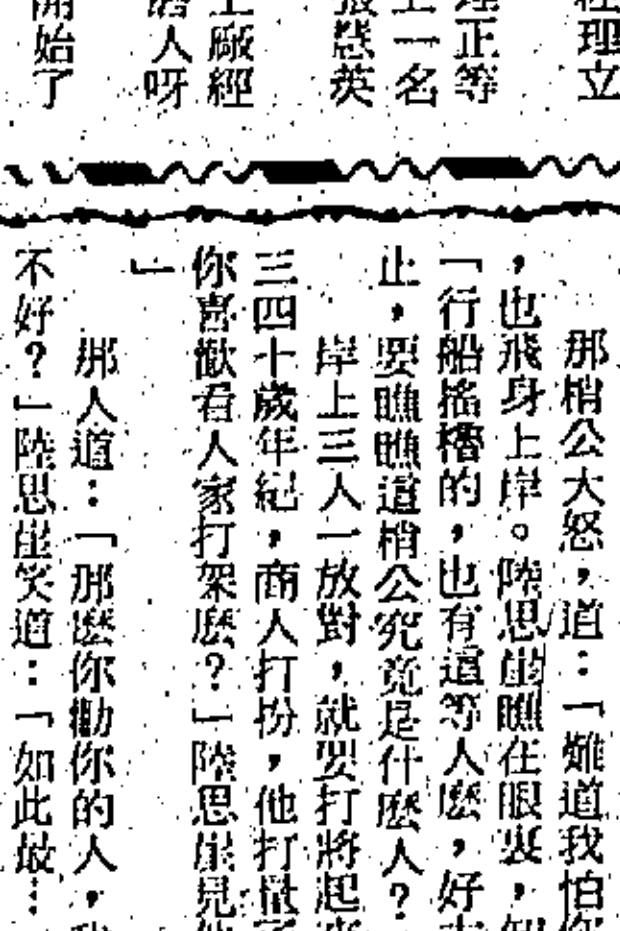 理立
理正等
上一名
張慧英
工廠經
磨人呀
開始了
那梢公大怒,道:「難道我怕你
,也飛身上岸。陸思崖瞧在眼裏,
「行船搖櫓的,也有這等人麽,好
止,要瞧瞧這梢公究竟是什麽人?
岸上三人一放對,就要打將起來
三四十歲年紀,商人打扮,他打量了
你喜歡看人家打架麽?」陸思崖見他
」
那人道:「那麽你勸你的人,我
不好?」陸思崖笑道:「如此最…